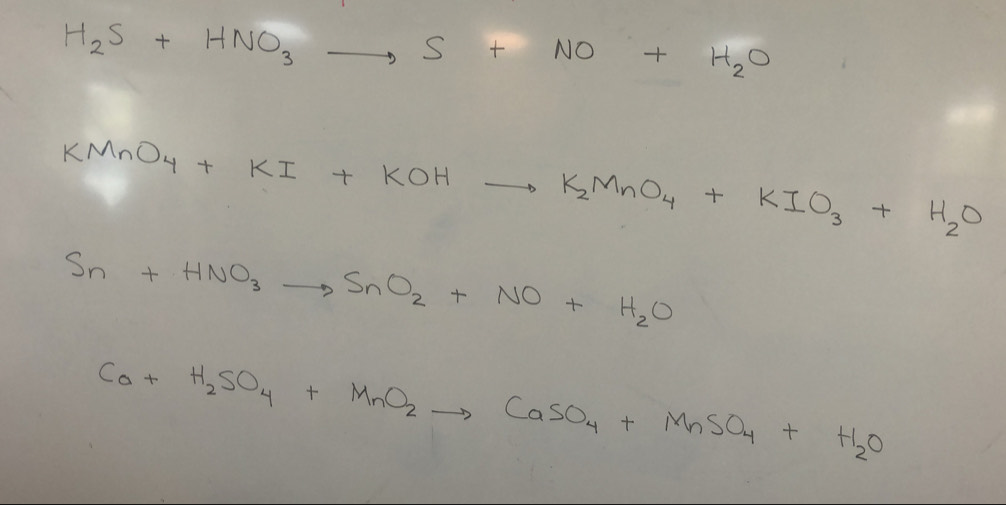 H₂S + HNO₃ → S + NO + H₂O
KMnO₄ + KI + KOH → K₂MnO₄ + KIO₃ + H₂O
Sn + HNO₃ → SnO₂ + NO + H₂O
Ca + H₂SO₄ + MnO₂ → CaSO₄ + MnSO₄ + H₂O